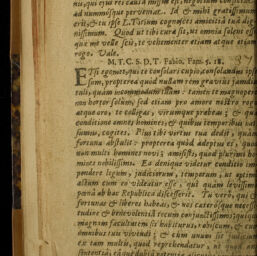 nus, qui ejus rei causa missus est, negotium conficiat,
ad nummosque perveniat. Id & mihi gratissimum
erit, & tu ipse L. Titium cognosces amicitia tua dig-
nissimum. Quod ut tibi cura sit, ut omnia solent esse
quæ me velle scis, te vehementer etiam atque etiam
rogo. Vale.
M. T. C. S. D. T. Fabio. Fam. 5. 18.
ETsi egomet, qui te consolari cupio, consolandus ipse
sum, propterea quod nullam rem gravius jamdiu
tuli, quàm incommodum illum: tamen te magnopere
non hortor solum, sed etiam pro amore nostro rogo
atque oro, te colligas, virumque præbeas; & qua
conditione omnes homines, & quibus temporibus nati
sumus, cogites. Plus tibi virtus tua dedit, quàm
fortuna abstulit: propterea quod adeptus es, quod
non multi homines novi; amisisti, quæ plurimi homines
nobilissimi. Ea denique videtur conditio im-
pendere legum, judiciorum, temporum, ut optimè
actum cum eo videatur esse, qui quàm levissima
pœna ab hac Republica discesserit. Tu verò, qui &
fortunas & liberos habeas, & nos cæterosque necessi-
tudine & benevolentia tecum conjunctissimos; quique
magnam facultatem sis habiturus nobiscum, & cum
omnibus tuis vivendi; & cum unum sit judicium
ex tam multis, quod reprehendatur, ut quod una
sententia, eaque dubia, potentiæ alicujus